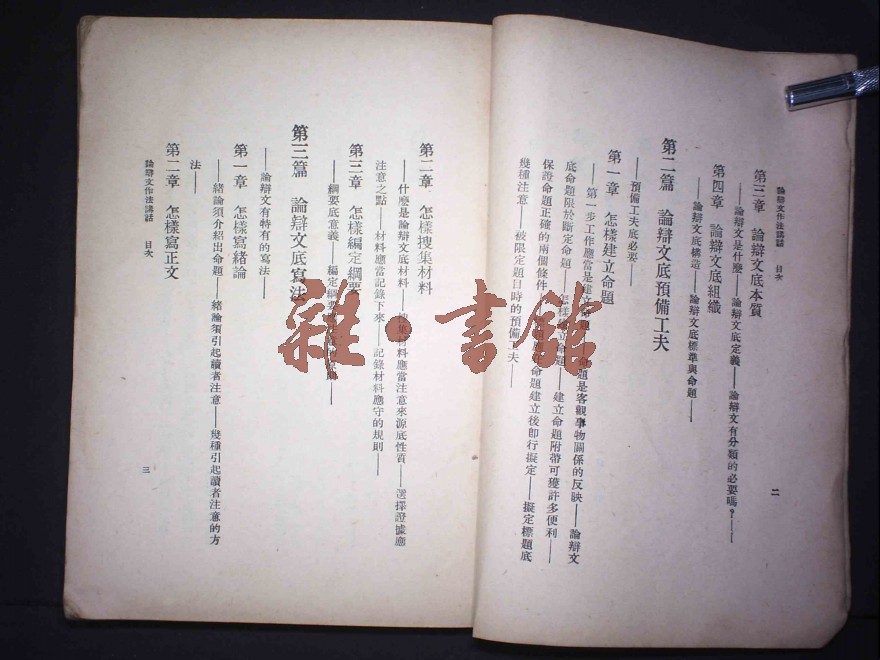 論辯文作法講話　目次
第三章　論辯文底本質
——論辯文是什麼——論辯文底定義——論辯文有分類的必要嗎？——
第四章　論辯文底組織
——論辯文底構造——論辯文底標準與命題——
第二篇　論辯文底預備工夫
——預備工夫底必要——
第一章　怎樣建立命題
——第一步工作應當是建立命題——命題是客觀事物關係的反映——論辯文
底命題限於斷定命題——怎樣建立命題——建立命題附帶可獲許多便利——
保證命題正確的兩個條件——題應命題建立後卽行擬定——擬定標題底
幾種注意——被限定題目時的預備工夫——
二
第二章　怎樣搜集材料
——什麼是論辯文底材料——搜集材料應當注意來源底性質——選擇證據應
注意之點——材料應當記錄下來——記錄材料應守的規則——
第三章　怎樣編定綱要
——綱要底意義——編定綱要
第三篇　論辯文底寫法
——論辯文有特有的寫法——
第一章　怎樣寫緒論
——緒論須介紹出命題——緒論須引起讀者注意——幾種引起讀者注意的方
法——
第二章　怎樣寫正文
論辯文作法講話　目次
三
雜·書館